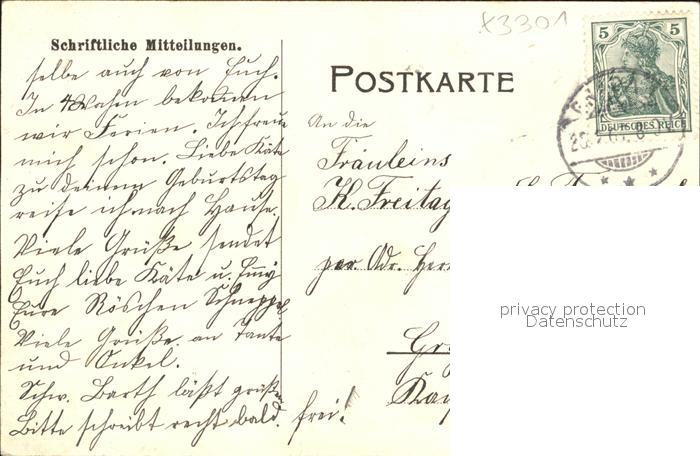 x3301
Schriftliche Mitteilungen.
selbe auch von Euch.
In 4 Wochen bekommen
wir Ferien. Ich freue
mich schon. Liebe Käte
zu deinem Geburtstag
reise ich nach Hause.
Viele Grüße sendet
Euch liebe Käte u. Emmy
Eure Röschen Schnepper
Viele Grüße an Tante
und Onkel.
Schw. Barth läßt grüßen
Bitte schreibt recht bald.
POSTKARTE
5 5
DEUTSCHES REICH
An die
Fräuleins
K. Freitag
per Adr. Herr
frei!
privacy protection
Datenschutz